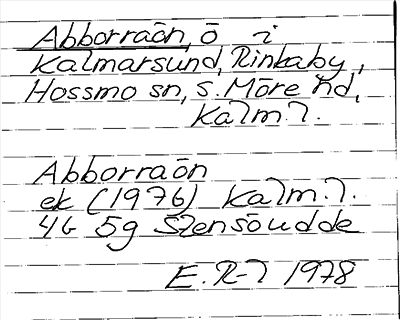 Abborraön, ö i
Kalmarsund, Rinkaby,
Hossmo sn, S. Möre hd,
Kalm. l.
Abborraön
ek (1976) Kalm. l.
4G 5g Stensöudde
E. R-l 1978